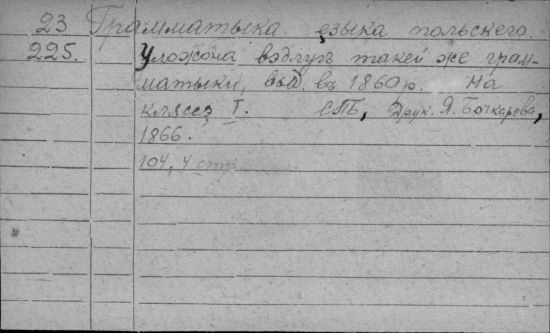 23 Грамматыка ęзыка польскего.
225. Уложона вэдлугъ такей же грам-
матыки, выд. въ 1860 р. На
клясcэ I. СТБ, Друк. Я. Бочкарева,
1866.
104, 4 стр